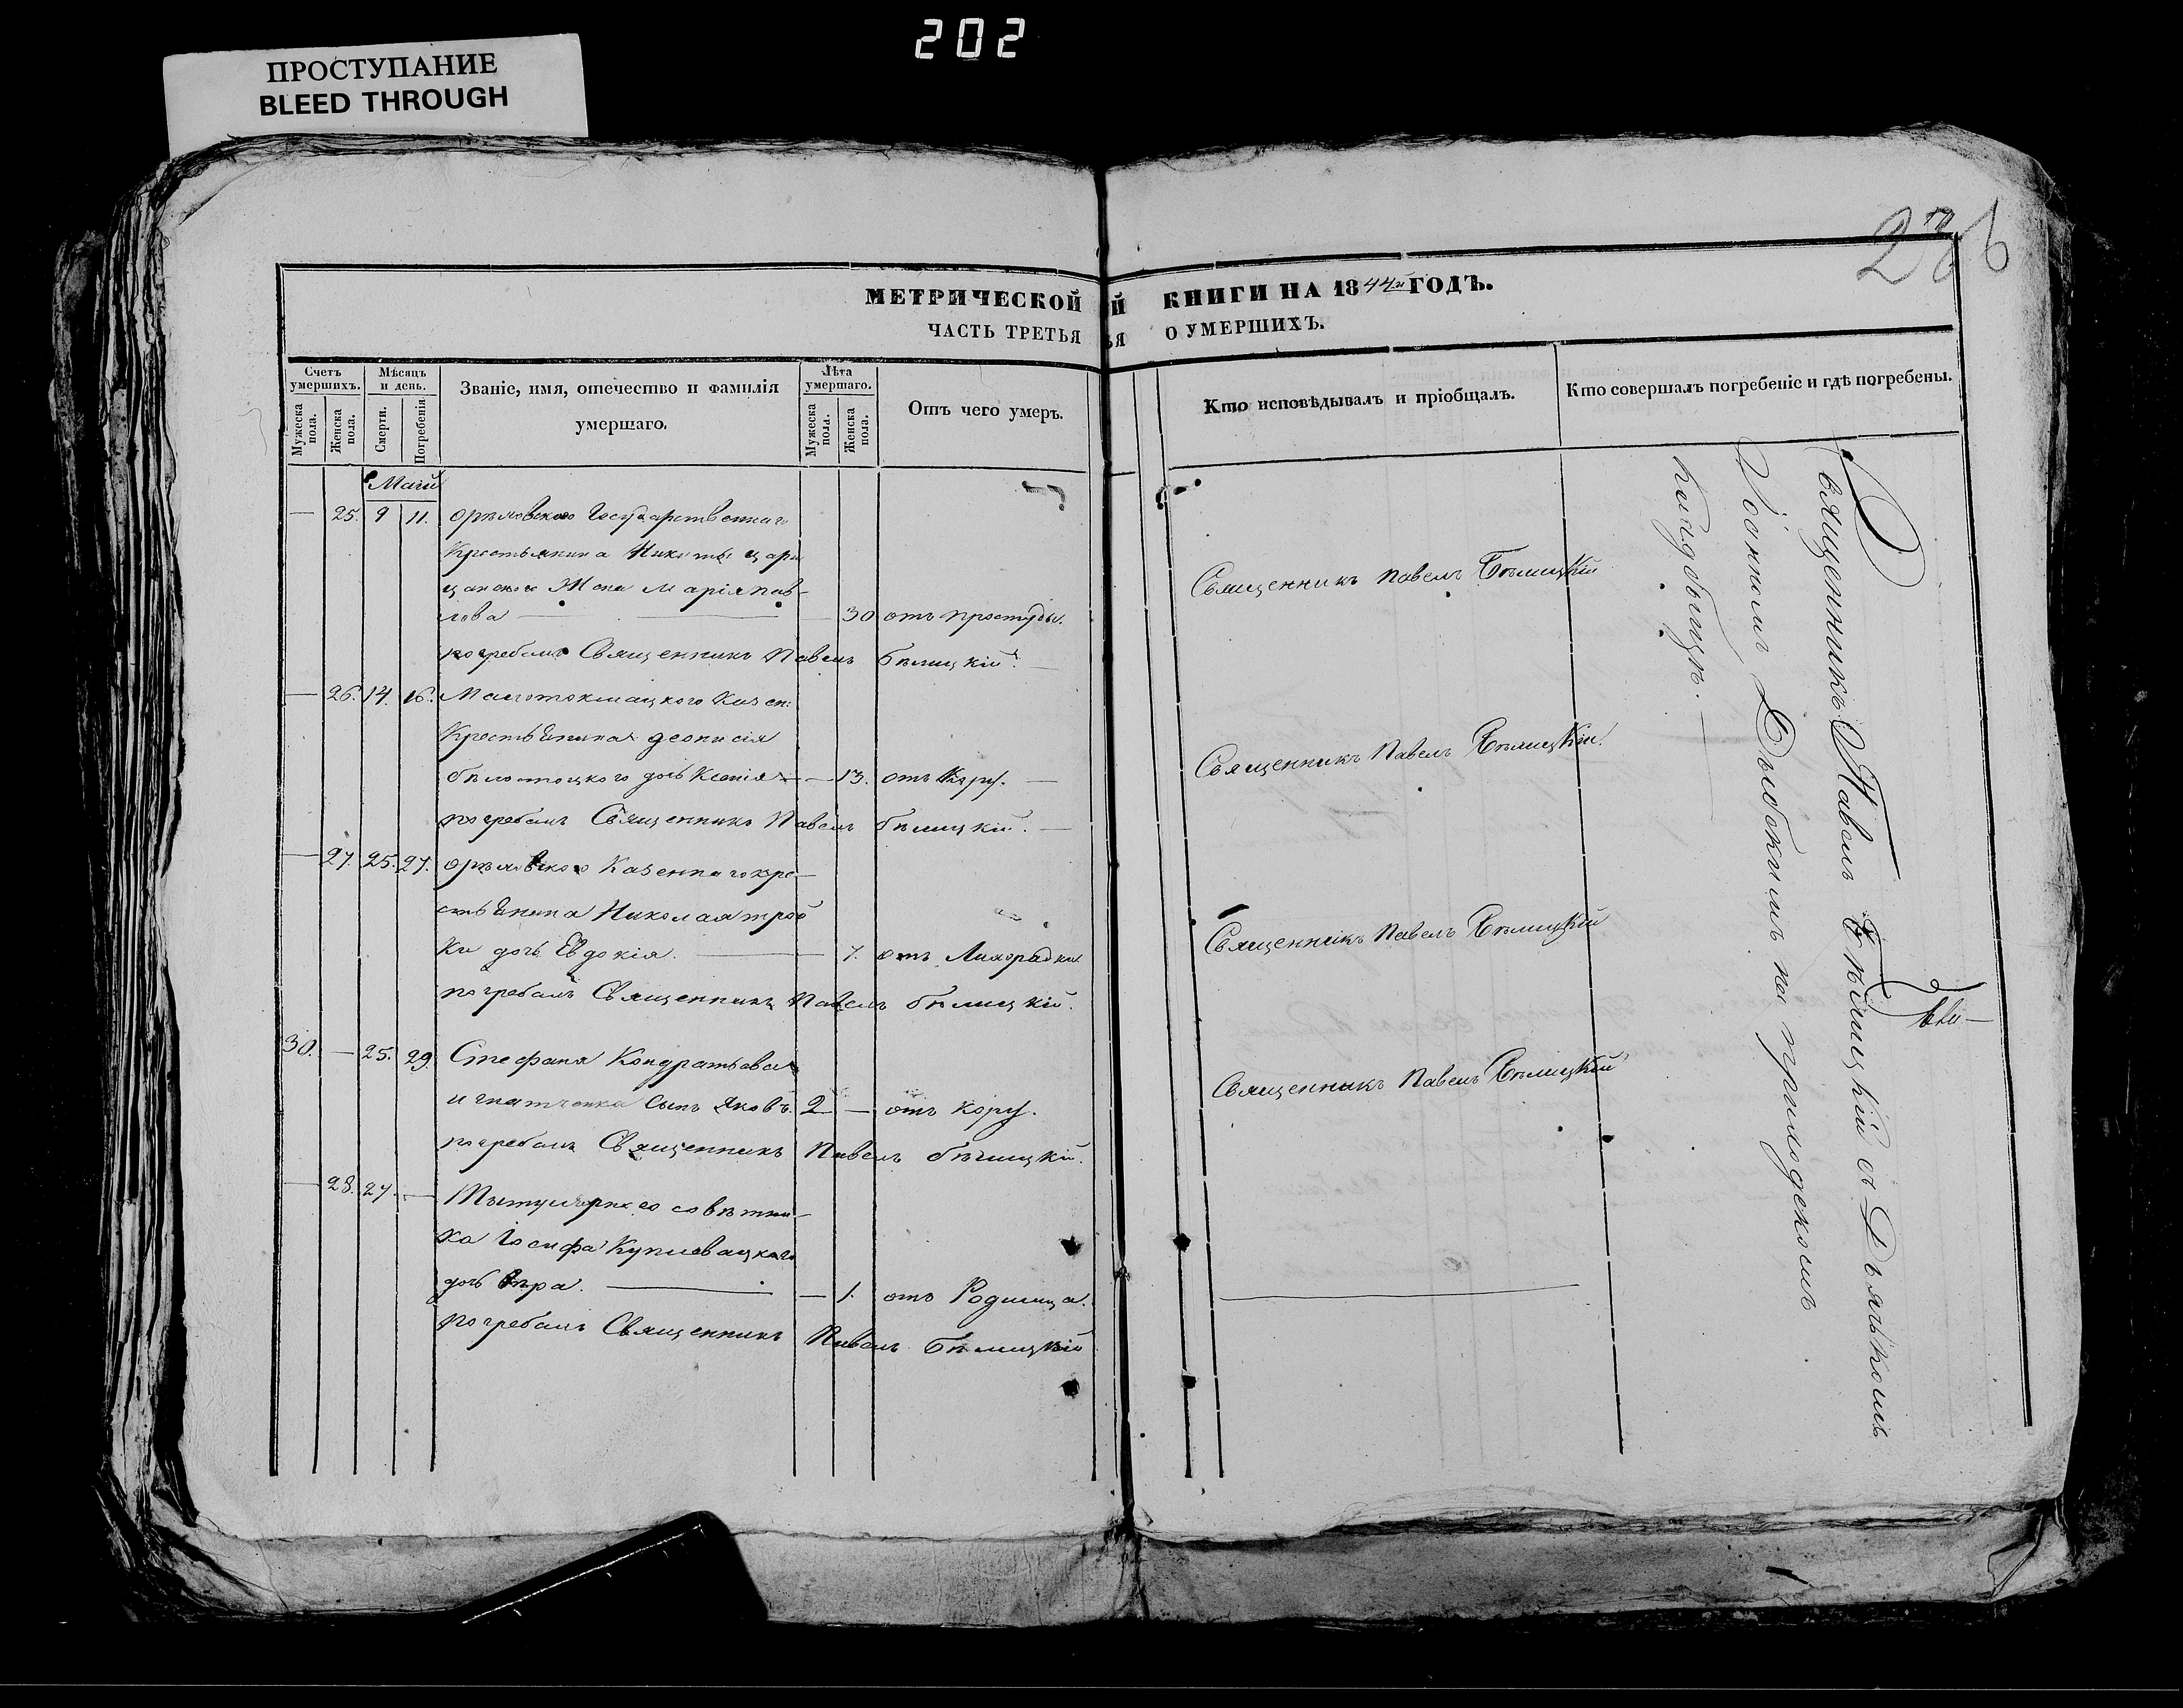 202
ПРОСТУПАНИЕ
BLEED THROUGH
МЕТРИЧЕСКОЙ
ЧАСТЬ ТРЕТЬЯ
Й КНИГИ НА 1844й ГОДЪ.
ЬЯ О УМЕРШИХЪ.
Счетъ умершихъ.
Мужеска пола.
Женска пола.
Мѣсяцъ и день.
Смерти.
Погребенія.
Званіе, имя, отечество и фамилія
умершаго.
Лѣта умершаго.
Мужеска пола.
Женска пола.
Отъ чего умеръ.
Кто исповѣдывалъ и пріобщалъ.
Кто совершалъ погребеніе и гдѣ погребены.
Маій
— 25. 9 11. Орѣховского Государственнаго
Крестьянина Никиты
Жена Марія Пав-
лова — — 30 отъ простуды.
погребалъ Священникъ Павелъ Бѣлицкій. —
Священникъ Павелъ Бѣлицкій
— 26. 14. 16. Малотокмацкого Казен:
Крестьянина Деонисія
Бѣлостоцкого дочь Ксенія — — 13. отъ Кору. —
погребалъ Священникъ Павелъ Бѣлицкій. —
Священникъ Павелъ Бѣлицкій.
— 27. 25. 27. Орѣховского Казеннаго кре-
стьянина Николая
ки дочь Евдокія. — — 7. отъ Лихорадки.
погребалъ Священникъ Павелъ Бѣлицкій.
Священникъ Павелъ Бѣлицкій
30. — 25. 29. Стефана Кондратьева
Игнатченка сынъ Яковъ. 2 — отъ кору.
погребалъ Священникъ Павелъ Бѣлицкій.
Священникъ Павелъ Бѣлицкій
— 28. 27. — Тытулярнаго совѣтни-
ка Іосифа Купчевацкаго
дочь Вѣра. — — 1. отъ Родимца.
погребалъ Священникъ Павелъ Бѣлицкій
Священникъ Павелъ Бѣлицкій съ Дьячкомъ
Іоанномъ на приходскомъ
кладбищѣ. —